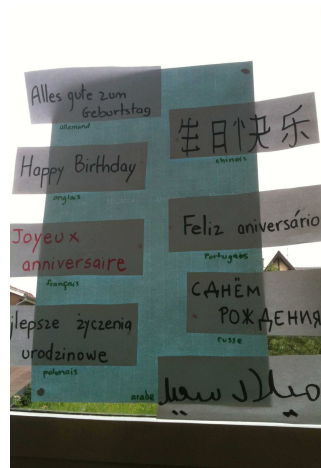 Alles gute zum
Geburtstag
allemand
生日快乐
chinois
Happy Birthday
anglais
Feliz aniversário
Portugais
Joyeux
anniversaire
français
С ДНЁМ
РОЖДЕНИЯ
russe
jlepsze życzenia
urodzinowe
polonais
arabe
ميلاد سعيد